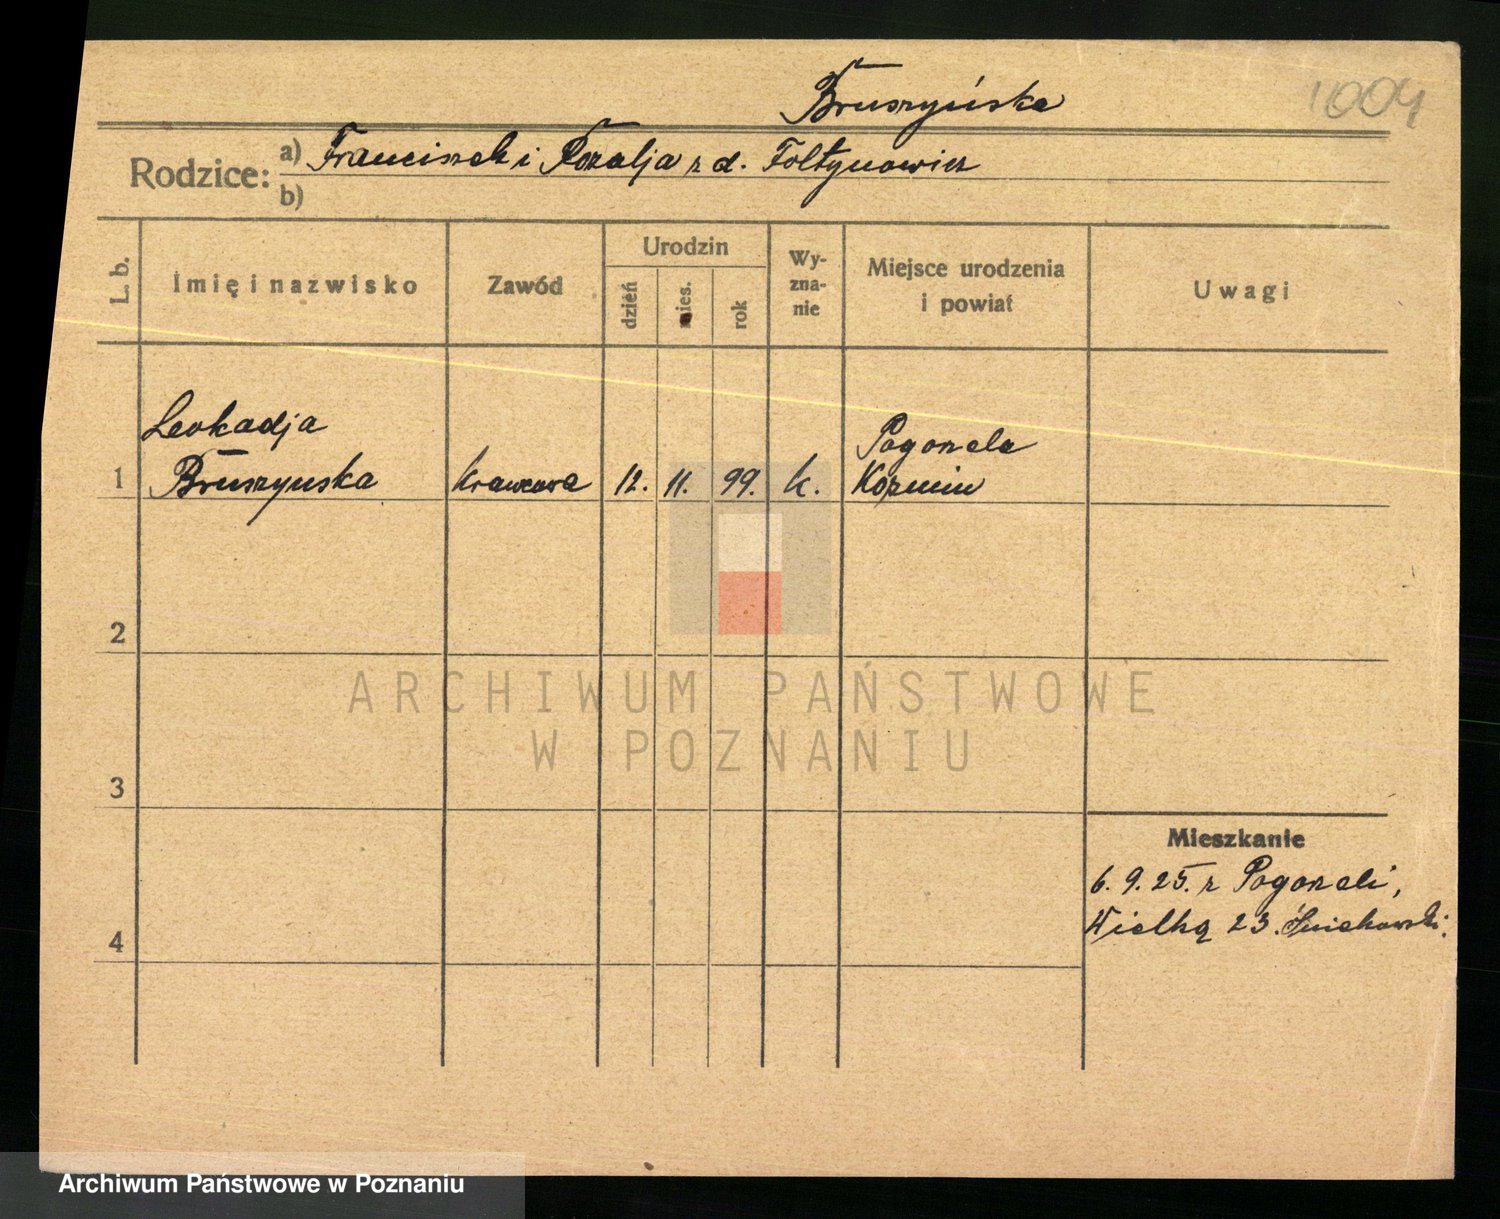 Bruszyńska
1004
Rodzice: a) Franciszek i Rozalja z d. Foltynowicz
b)
L. b.
Imię i nazwisko
Zawód
Urodzin
dzień
mies.
rok
Wy-
zna-
nie
Miejsce urodzenia
i powiat
Uwagi
Leokadja
1 Bruszynska krawcowa 12. 11. 99. k. Pogorzela
Koźmin
2
ARCHIWUM PAŃSTWOWE
W POZNANIU
3
Mieszkanie
6. 9. 25. z Pogorzeli,
Wielka 23.
4
Archiwum Państwowe w Poznaniu